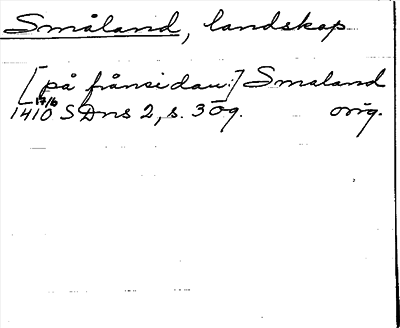 Småland, landskap
[på frånsidan:] Smaland
1410 17/6 SDns 2, s. 309. orig.